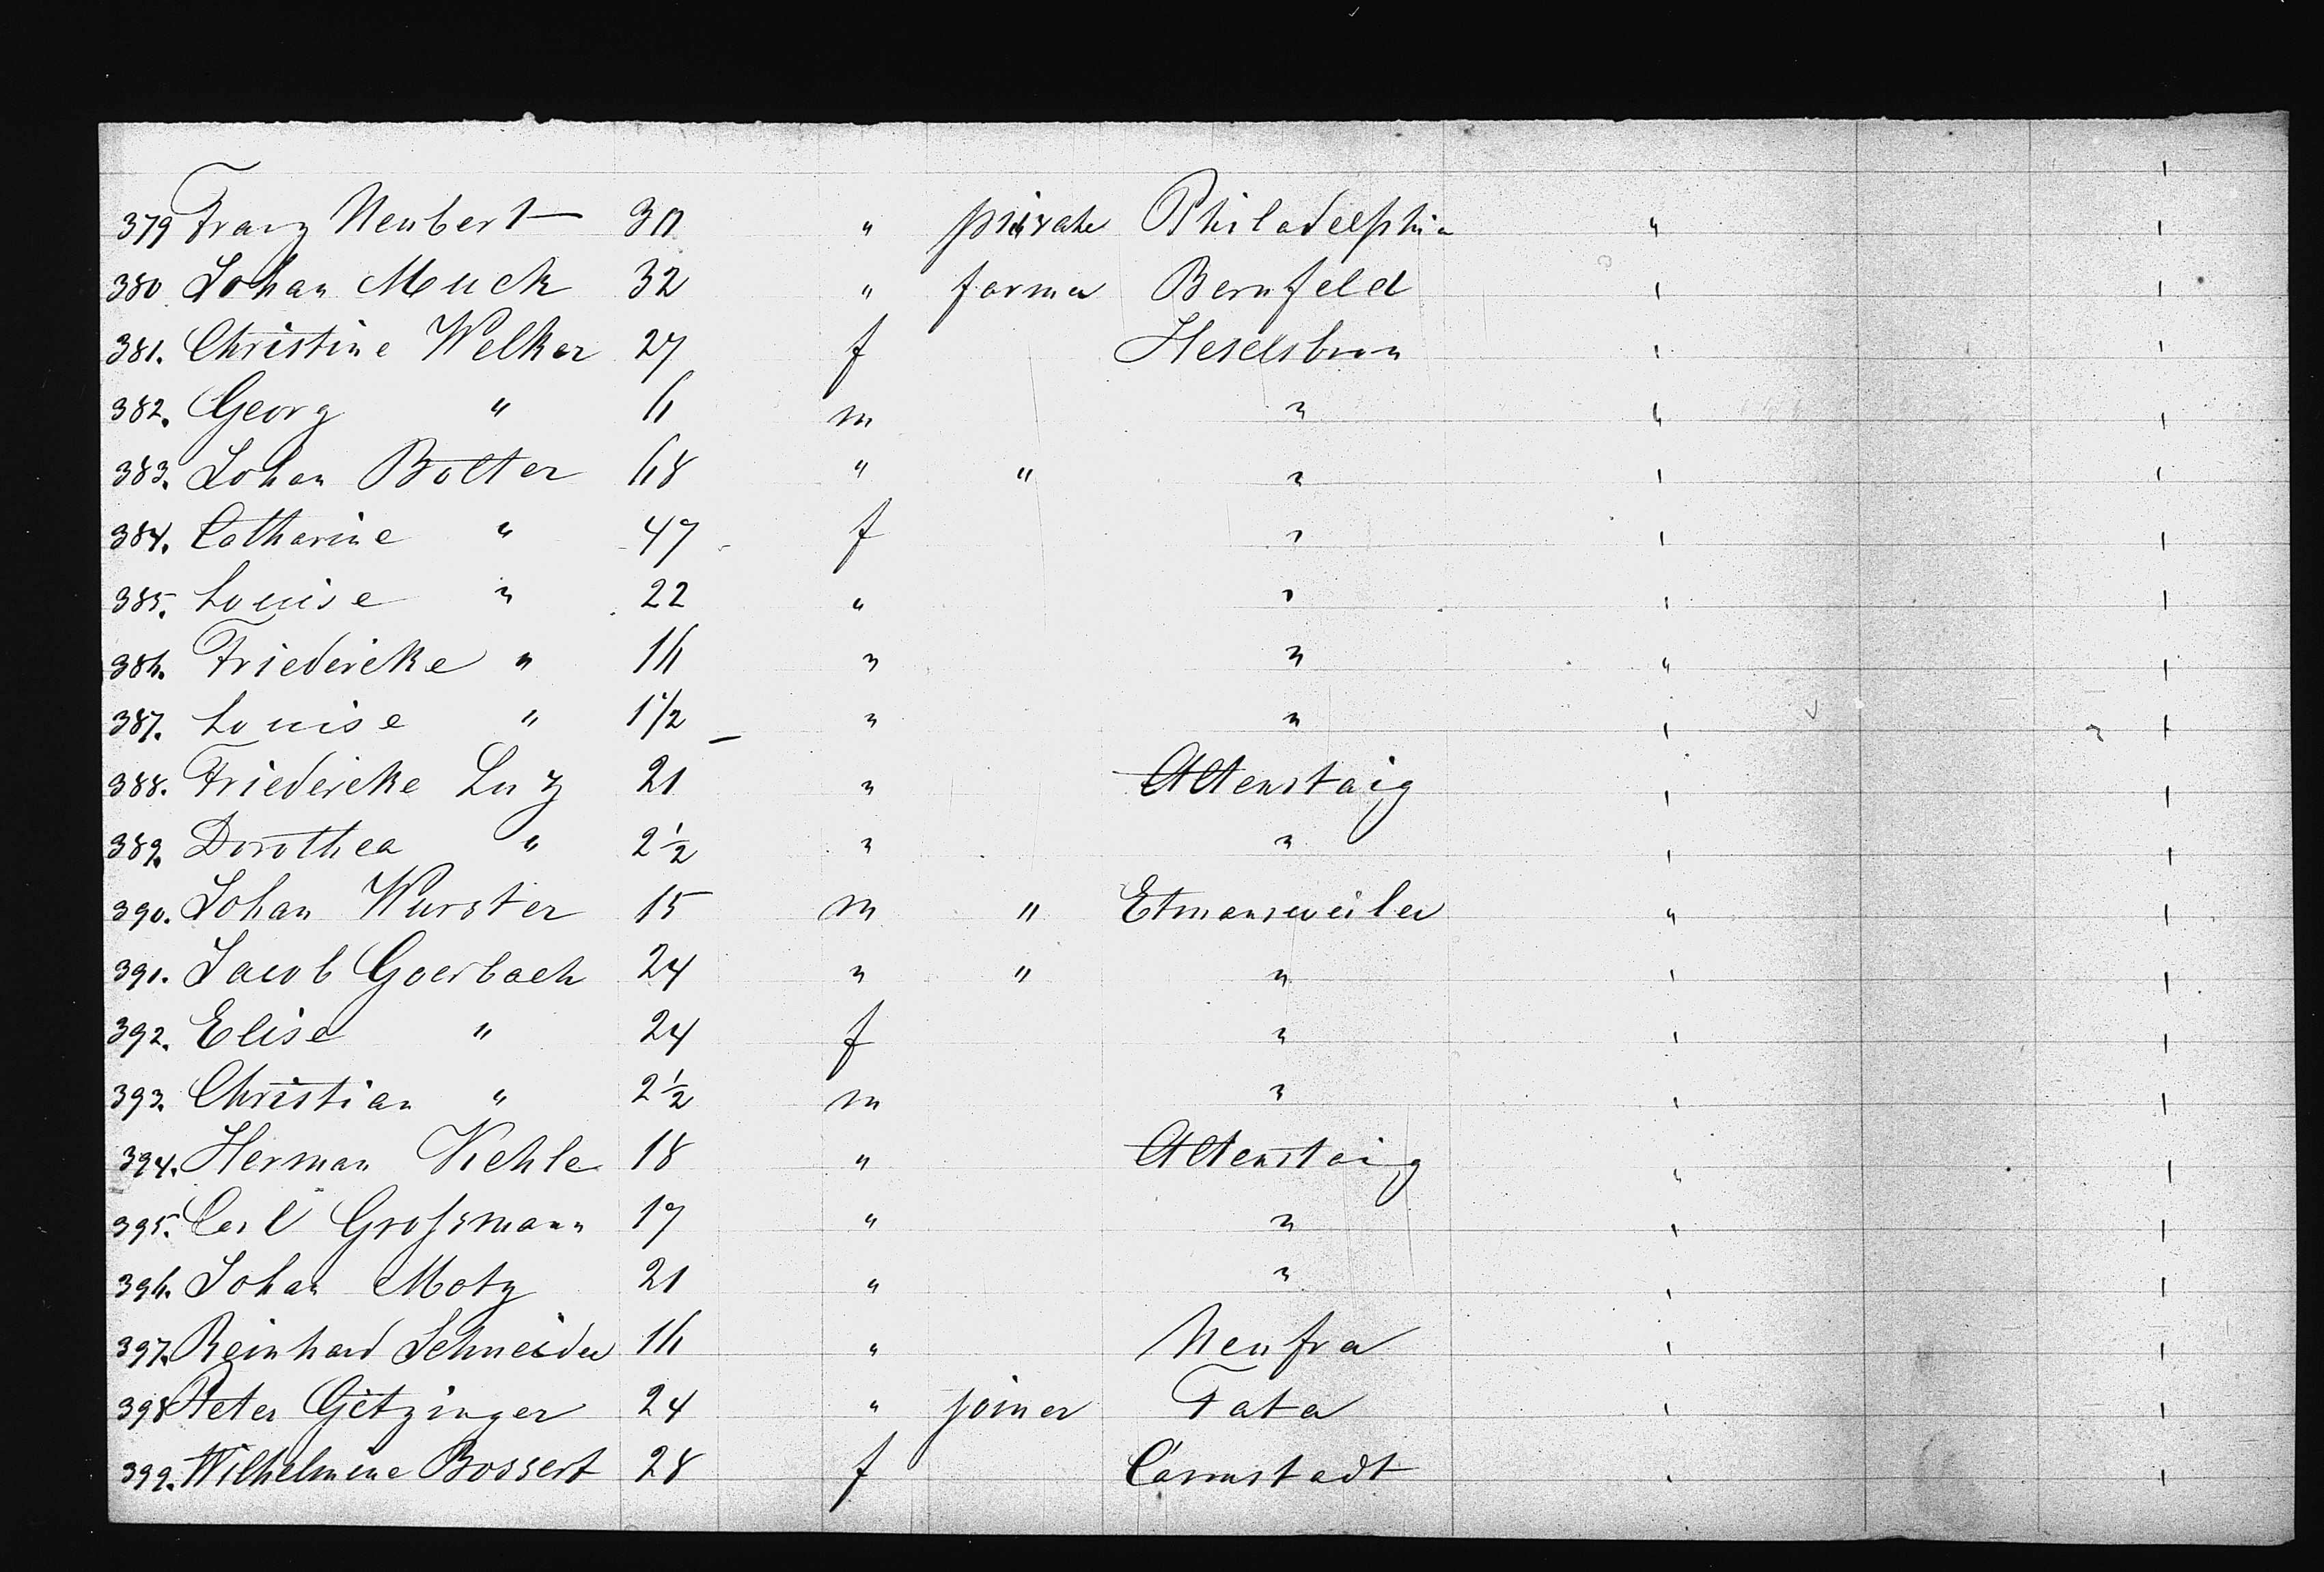 379 Franz Neubert 30 " private Philadelphia "
380 Johan Muck 32 " farmer Bernfeld "
381. Christine Welker 27 f Heselsbron "
382. Georg " 6 m " "
383. Johan Bolter 68 " " " "
384. Catharine " 47 f " "
385. Louise " 22 " " "
386. Friedericke " 16 " " "
387. Louise " 1 1/2 " " "
388. Friedericke Luz 21 " Altenstaig "
389. Dorothea " 2 1/2 " " "
390. Johan Wurster 15 m " Etmansweiler "
391. Jacob Goerbach 24 " " " "
392. Elise " 24 f " "
393. Christian " 2 1/2 m " "
394. Herman Kehle 18 " Altenstaig "
395. Carl Grossmann 17 " " "
396. Johan Motz 21 " " "
397. Reinhard Schneider 16 " Neufra "
398 Peter Götzinger 24 " joiner Tata "
399. Wilhelmine Bossert 28 f Cannstadt "